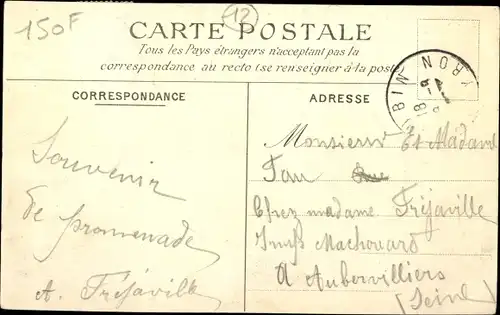 150F
12
CARTE POSTALE
Tous les Pays étrangers n'acceptant pas la
correspondance au recto (se renseigner à la poste
CORRESPONDANCE
ADRESSE
Souvenir
de promenade
A. Fréjaville
Monsieur Et Madame
Fau
Chez madame Fréjaville
Machouard
A Aubervilliers
(Seine)